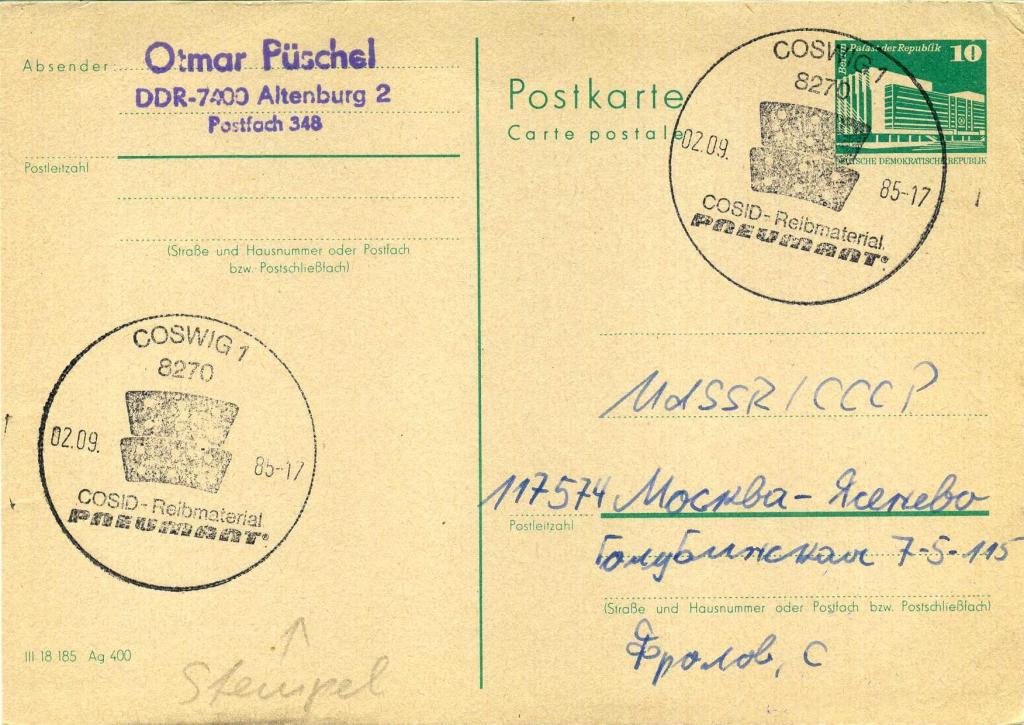 Absender: Otmar Püschel
DDR-7400 Altenburg 2
Postfach 348
Postleitzahl
(Straße und Hausnummer oder Postfach
bzw. Postschließfach)
COSWIG 1
8270
02.09. 85-17
COSID-Reibmaterial
PNEUMANT®
III 18 185 Ag 400
Stempel
Postkarte
Carte postale
Berlin Palast der Republik 10
DEUTSCHE DEMOKRATISCHE REPUBLIK
COSWIG 1
8270
02.09. 85-17
COSID-Reibmaterial
PNEUMANT®
UdSSR/CCCP
117574 Москва-Ясенево
Postleitzahl
Голубинская 7-5-115
(Straße und Hausnummer oder Postfach bzw. Postschließfach)
Фролов, С